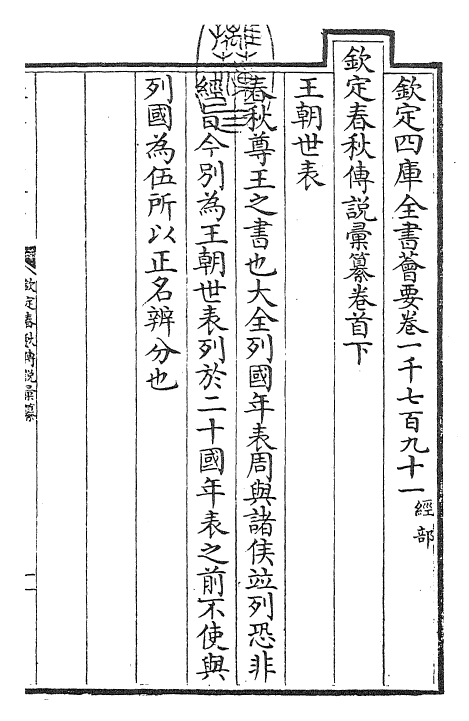 欽定四庫全書薈要卷一千七百九十一 經部
欽定春秋傳說彙纂卷首下
王朝世表
春秋尊王之書也大全列國年表周與諸侯竝列恐非
經旨今別為王朝世表列於二十國年表之前不使與
列國為伍所以正名辨分也
欽定春秋傳說彙纂